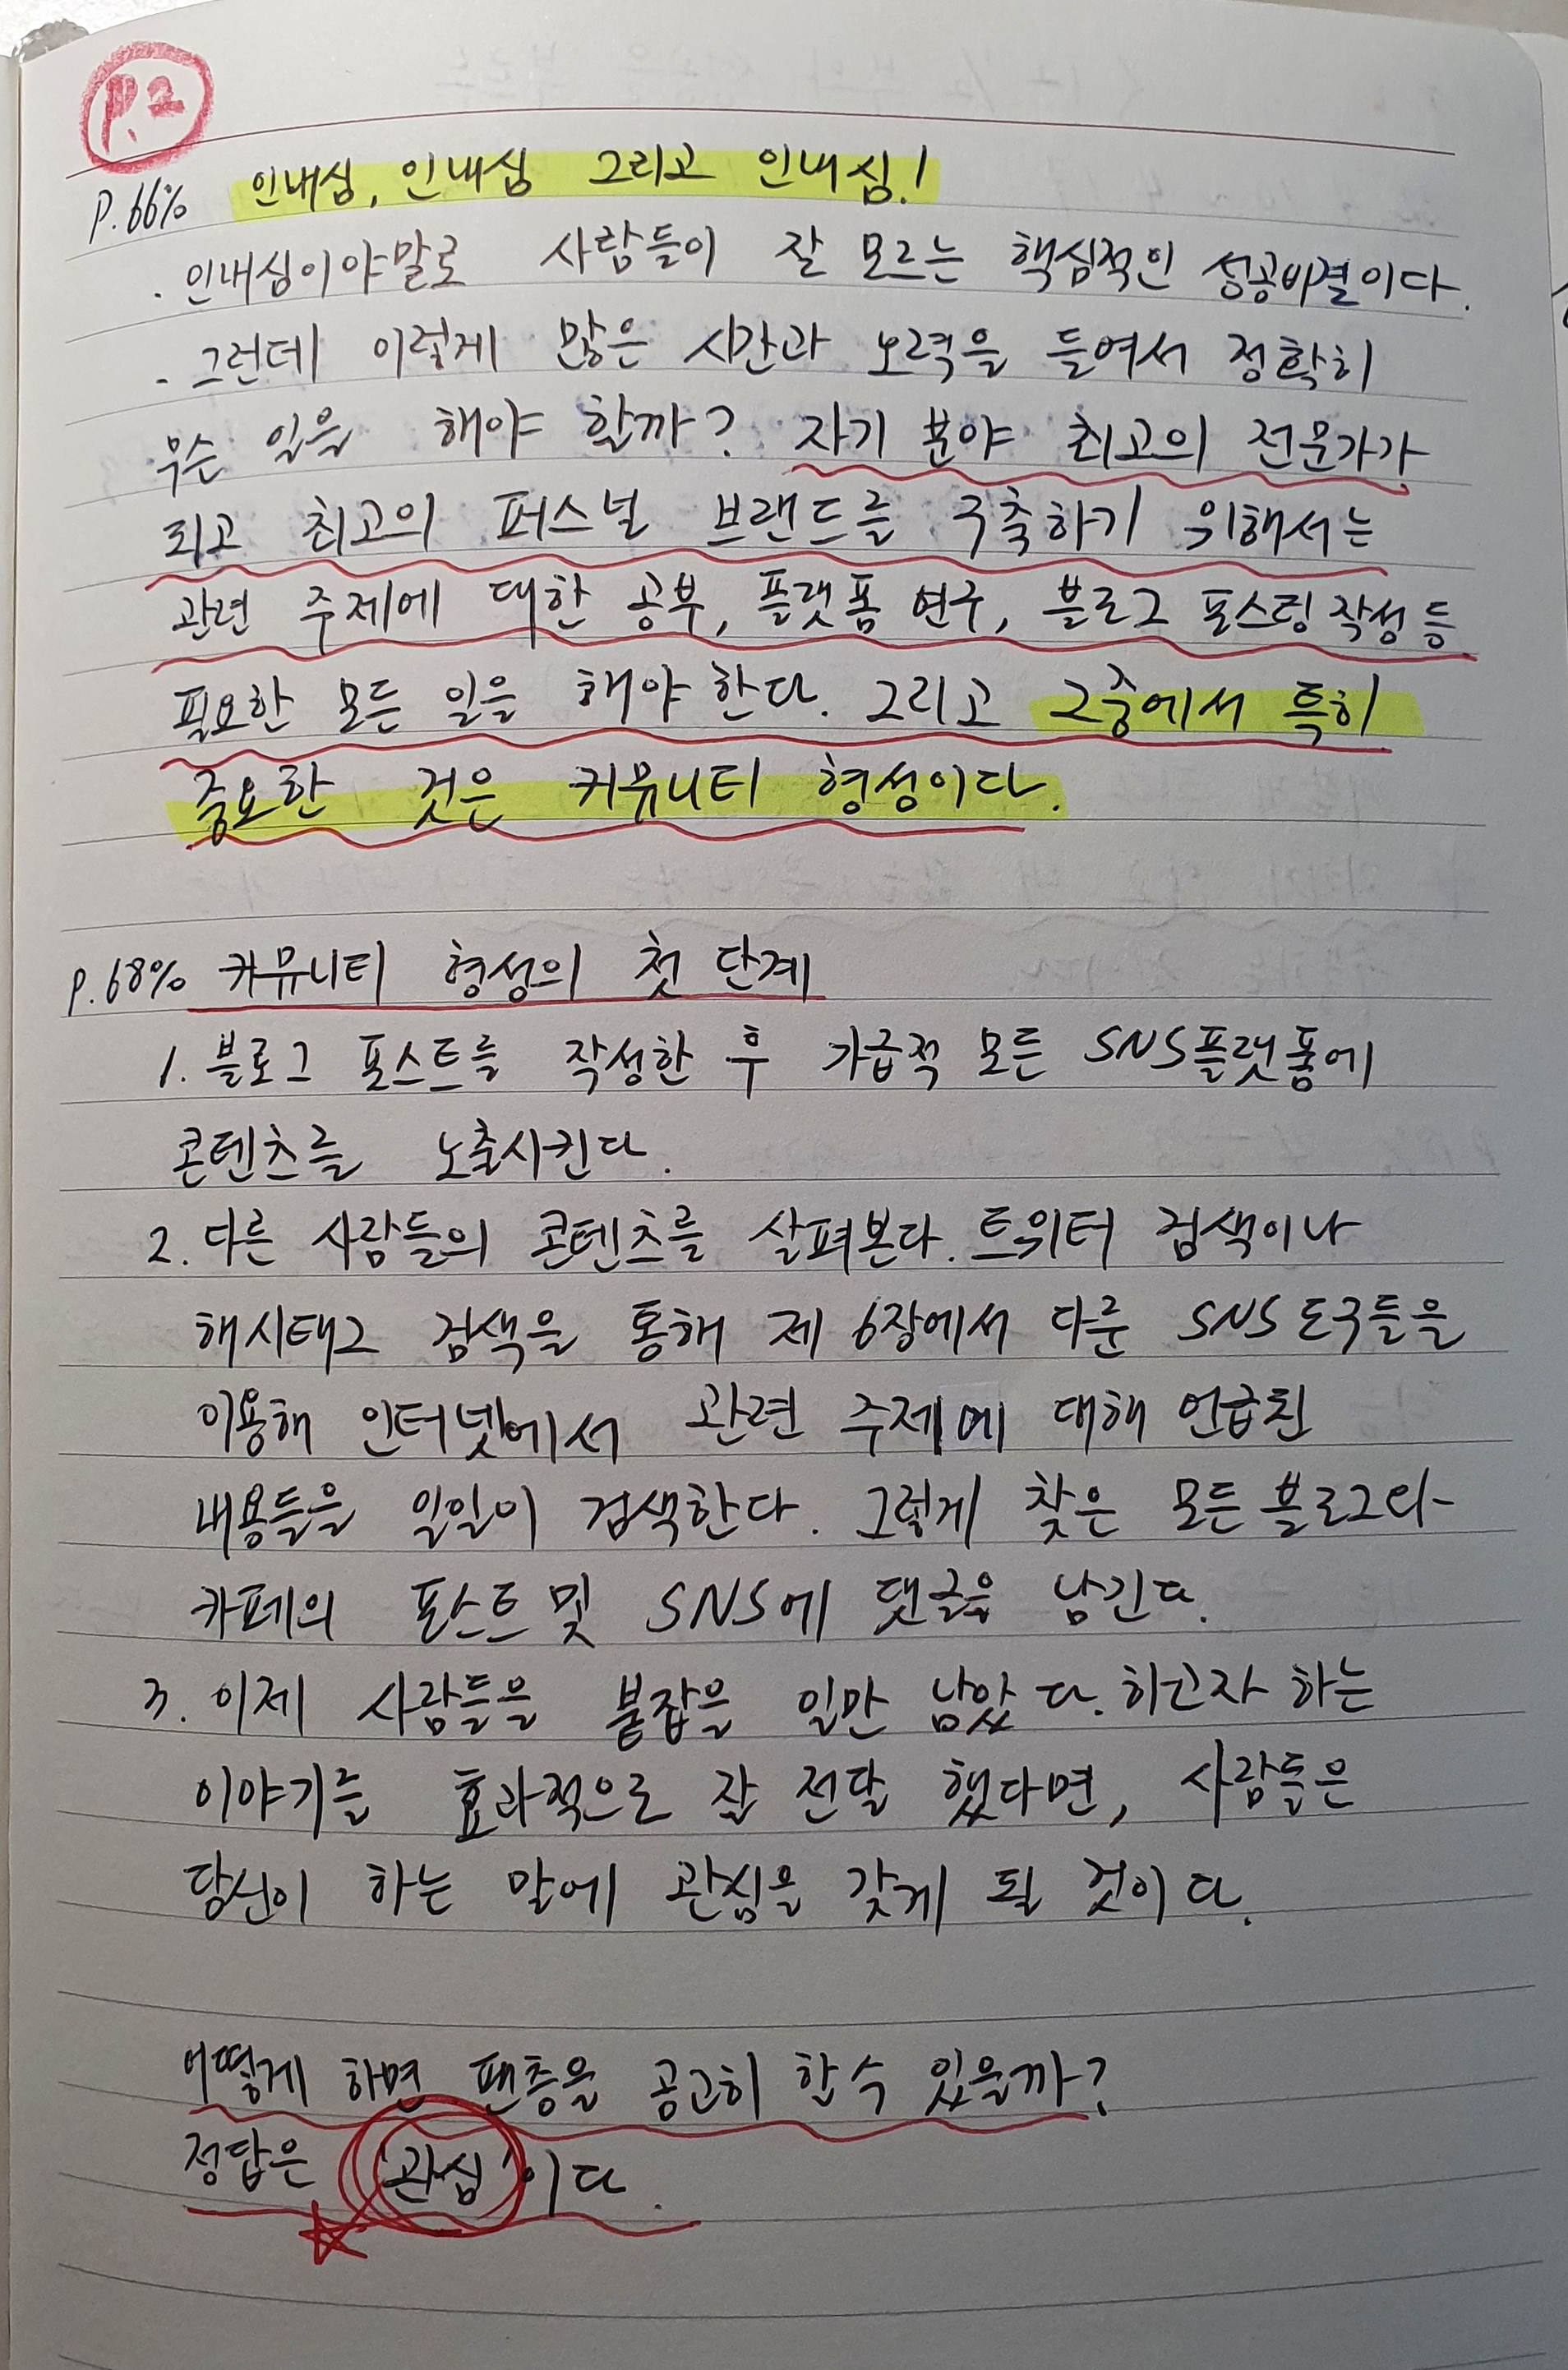 P.2
P.66% 인내심, 인내심 그리고 인내심!
. 인내심이야말로 사람들이 잘 모르는 핵심적인 성공비결이다.
- 그런데 이렇게 많은 시간과 노력을 들여서 정확히
무슨 일을 해야 할까? 자기 분야 최고의 전문가가
되고 최고의 퍼스널 브랜드를 구축하기 위해서는
관련 주제에 대한 공부, 플랫폼 연구, 블로그 포스팅 작성 등
필요한 모든 일을 해야 한다. 그리고 그중에서 특히
중요한 것은 커뮤니티 형성이다.
P.68% 커뮤니티 형성의 첫 단계
1. 블로그 포스트를 작성한 후 가급적 모든 SNS플랫폼에
콘텐츠를 노출시킨다.
2. 다른 사람들의 콘텐츠를 살펴본다. 트위터 검색이나
해시태그 검색을 통해 제 6장에서 다룬 SNS 도구들을
이용해 인터넷에서 관련 주제에 대해 언급된
내용들을 일일이 검색한다. 그렇게 찾은 모든 블로그와
카페의 포스트 및 SNS에 댓글을 남긴다.
3. 이제 사람들을 붙잡을 일만 남았다. 하고자 하는
이야기를 효과적으로 잘 전달 했다면, 사람들은
당신이 하는 말에 관심을 갖게 될 것이다.
어떻게 하면 팬층을 공고히 할 수 있을까?
정답은 '관심'이다.